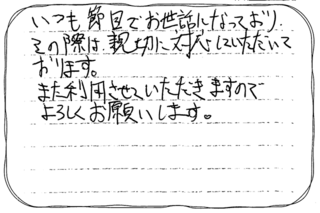 いつも節目でお世話になっており、
その際は親切に対応していただいて
おります。
また利用させていただきますので
よろしくお願いします。